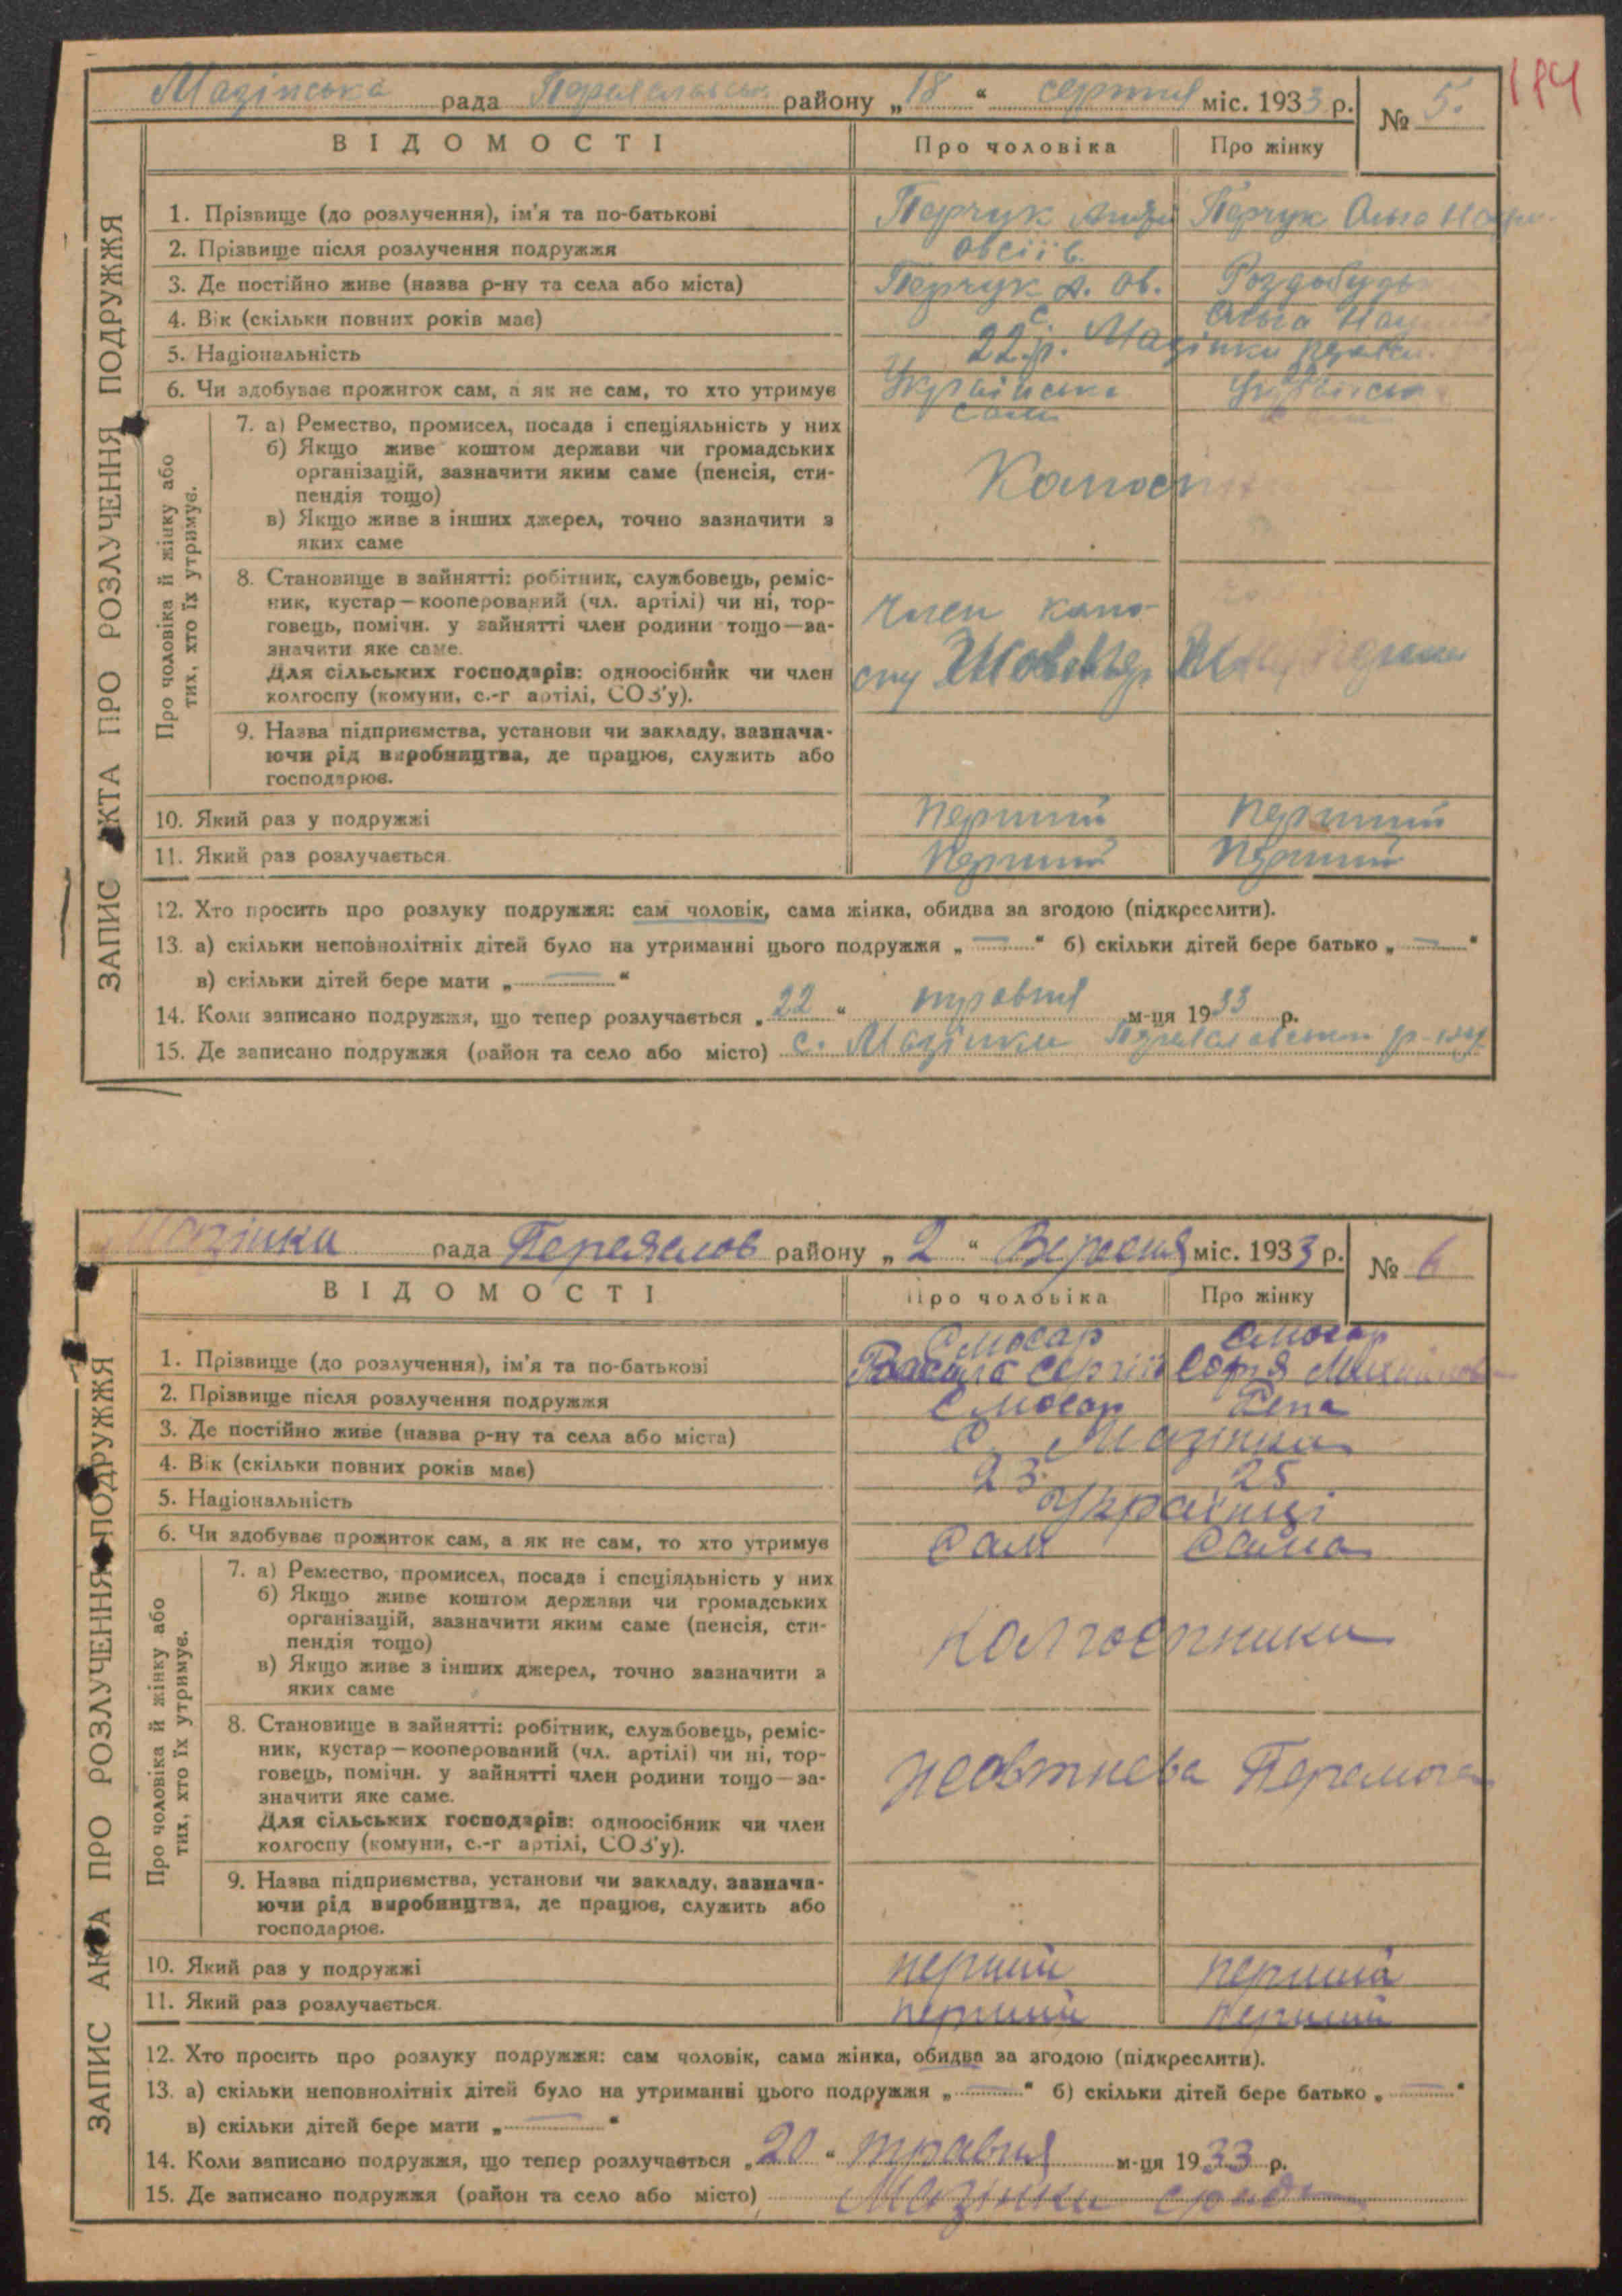 184
Мазінська рада Переяславськ району „18“ серпня міс. 1933 р. № 5.
ВІДОМОСТІ Про чоловіка Про жінку
ЗАПИС АКТА ПРО РОЗЛУЧЕННЯ ПОДРУЖЖЯ
1. Прізвище (до розлучення), ім'я та по-батькові Перчук Перчук Ольга
Овсіїв.
2. Прізвище після розлучення подружжя
3. Де постійно живе (назва р-ну та села або міста) Перчук А. Ов. Роздобудь
Ольга
4. Вік (скільки повних років має) 22 р. с. Мазінки
5. Національність
6. Чи здобуває прожиток сам, а як не сам, то хто утримує Українська
сам
Про чоловіка й жінку або тих, хто їх утримує.
7. а) Ремество, промисел, посада і спеціяльність у них
б) Якщо живе коштом держави чи громадських
організацій, зазначити яким саме (пенсія, сти-
пендія тощо)
в) Якщо живе з інших джерел, точно зазначити з
яких саме
8. Становище в зайнятті: робітник, службовець, реміс-
ник, кустар—кооперований (чл. артілі) чи ні, тор-
говець, помічн. у зайнятті член родини тощо—за-
значити яке саме.
Для сільських господарів: одноосібник чи член
колгоспу (комуни, с.-г артілі, СОЗ'у).
член
9. Назва підприємства, установи чи закладу, зазнача-
ючи рід виробництва, де працює, служить або
господарює.
10. Який раз у подружжі перший перший
11. Який раз розлучається перший перший
12. Хто просить про розлуку подружжя: сам чоловік, сама жінка, обидва за згодою (підкреслити).
13. а) скільки неповнолітніх дітей було на утриманні цього подружжя „—“ б) скільки дітей бере батько „—“
в) скільки дітей бере мати „—“
14. Коли записано подружжя, що тепер розлучається „22“ травня м-ця 1933 р.
15. Де записано подружжя (район та село або місто) с. Мазінки Переяславськ р-ну
Мазінки рада Переяслов району „2“ Вересня міс. 1933 р. № 6
ВІДОМОСТІ Про чоловіка Про жінку
ЗАПИС АКТА ПРО РОЗЛУЧЕННЯ ПОДРУЖЖЯ
Слюсар Слюсар
1. Прізвище (до розлучення), ім'я та по-батькові Василь Сергіїв Софія
2. Прізвище після розлучення подружжя Слюсар Репа
3. Де постійно живе (назва р-ну та села або міста) с. Мазінки
4. Вік (скільки повних років має) 23. 25
5. Національність Українці
6. Чи здобуває прожиток сам, а як не сам, то хто утримує Сам Сама
Про чоловіка й жінку або тих, хто їх утримує.
7. а) Ремество, промисел, посада і спеціяльність у них
б) Якщо живе коштом держави чи громадських
організацій, зазначити яким саме (пенсія, сти-
пендія тощо)
в) Якщо живе з інших джерел, точно зазначити з
яких саме
колгоспники
8. Становище в зайнятті: робітник, службовець, реміс-
ник, кустар—кооперований (чл. артілі) чи ні, тор-
говець, помічн. у зайнятті член родини тощо—за-
значити яке саме.
Для сільських господарів: одноосібник чи член
колгоспу (комуни, с.-г артілі, СОЗ'у).
жовтнева Перемога
9. Назва підприємства, установи чи закладу, зазнача-
ючи рід виробництва, де працює, служить або
господарює.
10. Який раз у подружжі перший перший
11. Який раз розлучається перший перший
12. Хто просить про розлуку подружжя: сам чоловік, сама жінка, обидва за згодою (підкреслити).
13. а) скільки неповнолітніх дітей було на утриманні цього подружжя „—“ б) скільки дітей бере батько „—“
в) скільки дітей бере мати „—“
14. Коли записано подружжя, що тепер розлучається „20“ травня м-ця 1933 р.
15. Де записано подружжя (район та село або місто) Мазінки